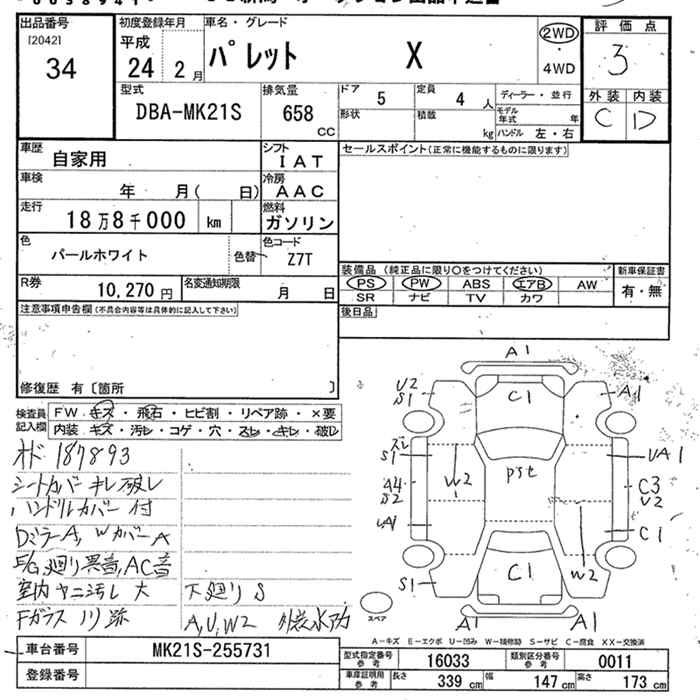 出品番号
[2042]
34
初度登録年月
平成
24 2 月
車名・グレード
パレット X
2WD
・
4WD
評価点
3
外装 内装
C D
型式
DBA-MK21S
排気量
658
CC
ドア
5
定員
4 人
ディーラー・並行
形状
積載
kg
モデル年式 年
ハンドル 左・右
車歴
自家用
シフト
IAT
車検
年 月( 日)
冷房
AAC
走行
18万8千000 km
燃料
ガソリン
色
パールホワイト
色替
色コード
Z7T
R券
10,270 円
名変通知期限
月 日
セールスポイント(正常に機能するものに限ります)
装備品 (純正品に限り○をつけてください)
新車保証書
PS PW ABS エアB AW
有・無
SR ナビ TV カワ
後日品
注意事項申告欄(不具合内容等は具体的に記入して下さい)
修復歴 有〔箇所 〕
検査員
記入欄
FW キズ・飛石・ヒビ割・リペア跡・×要
内装 キズ・汚レ・コゲ・穴・スレ・キレ・破レ
オド 187893
シートカバー キレ 破レ
ハンドルカバー 付
DミラーA, WカバーA
E/G廻り異音, AC音
室内ヤニ汚レ 大
下廻り S
Fガラス
A, U, W2
A1
U2
S1
C1
A1
S1
W2
pst
UA1
A4
S2
C3
U2
UA1
C1
S1
C1
W2
A1
A1
スペア
A-キズ E-エクボ U-凹み W-補修跡 S-サビ C-腐食 XX-交換済
車台番号
MK21S-255731
登録番号
型式指定番号
参考
16033
類別区分番号
参考
0011
車庫証明用
参考
長さ 339 cm 幅 147 cm 高さ 173 cm